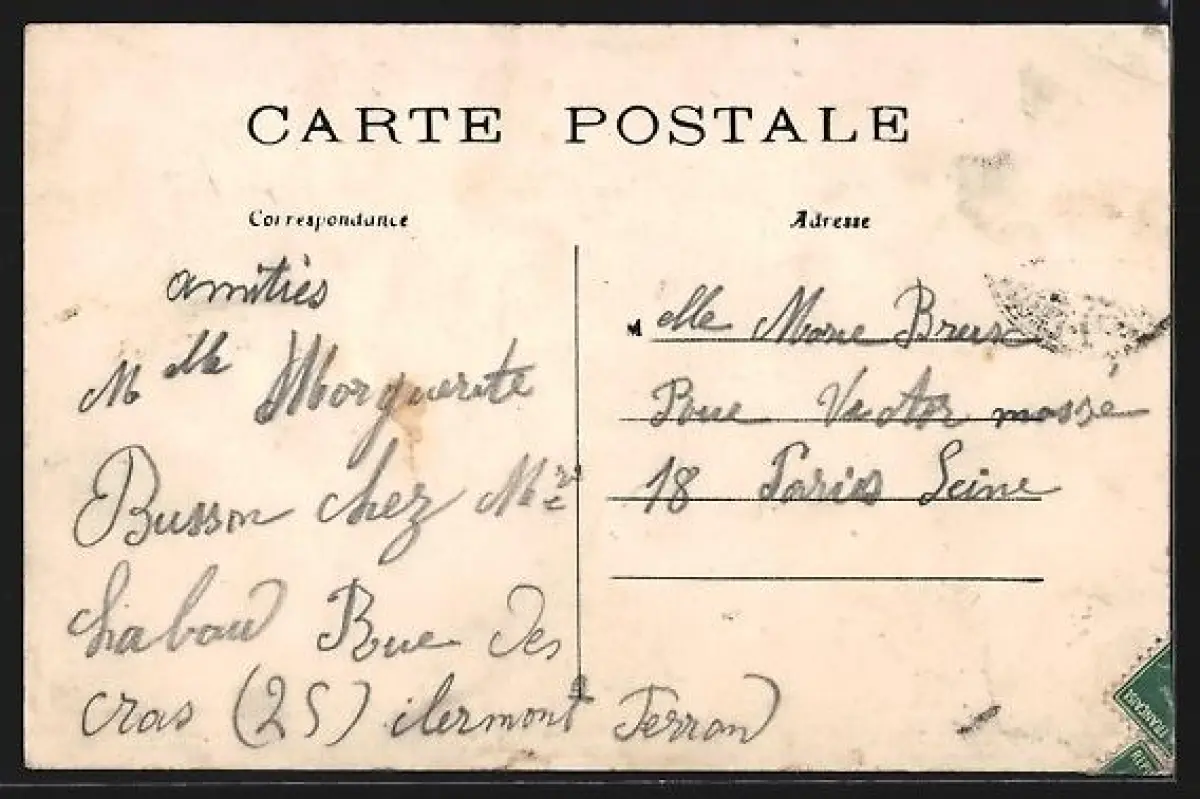 CARTE POSTALE
Correspondance
amitiés
Mlle Morguerite
Busson chez Mme
Chabaud Rue des
cras (25) clermont Ferrand
Adresse
Mlle Marie
Rue Victor massé
18 Paris Seine
FRANÇAISE